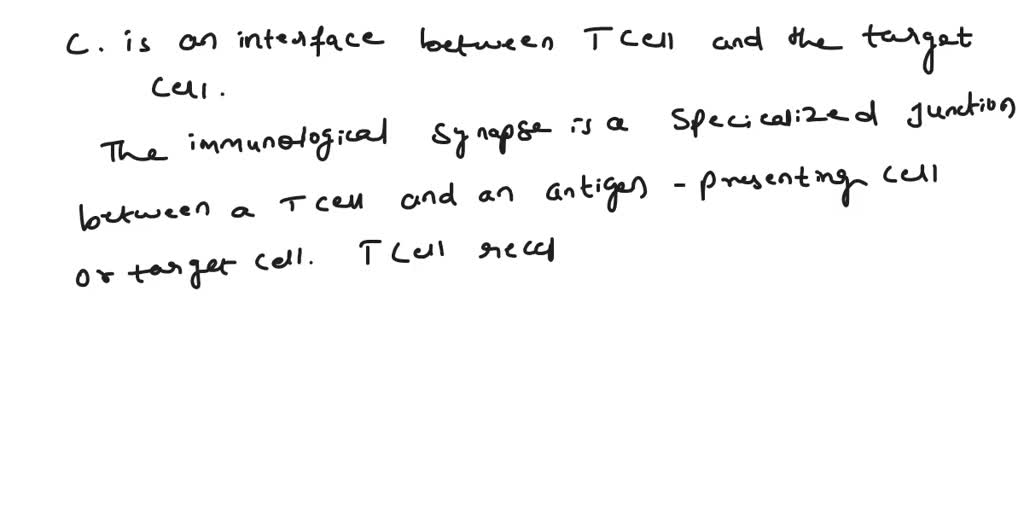 C. is an interface between T Cell and the target
Cell.
The immunological synapse is a specicalized junction
between a T cell and an antigen - presenting cell
or target cell. T Cell recep